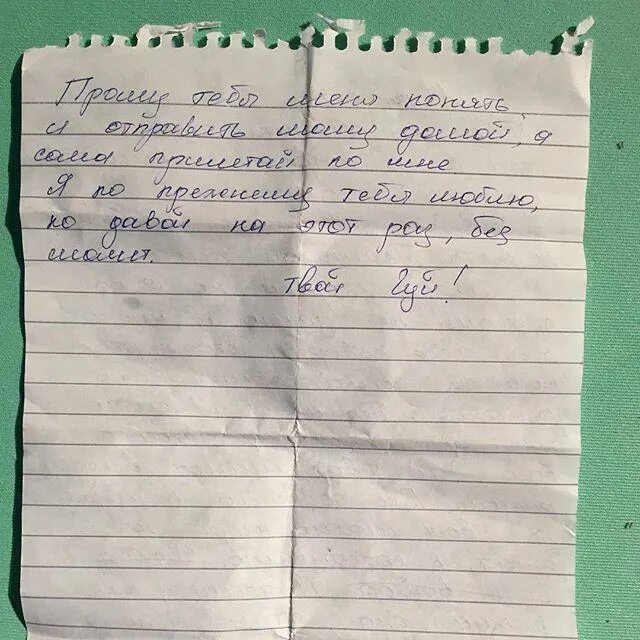 Прошу тебя меня понять
и отправить маму домой, а
сама прилетай ко мне.
Я по прежнему тебя люблю,
но давай на этот раз, без
мамы.
твой Гуй!